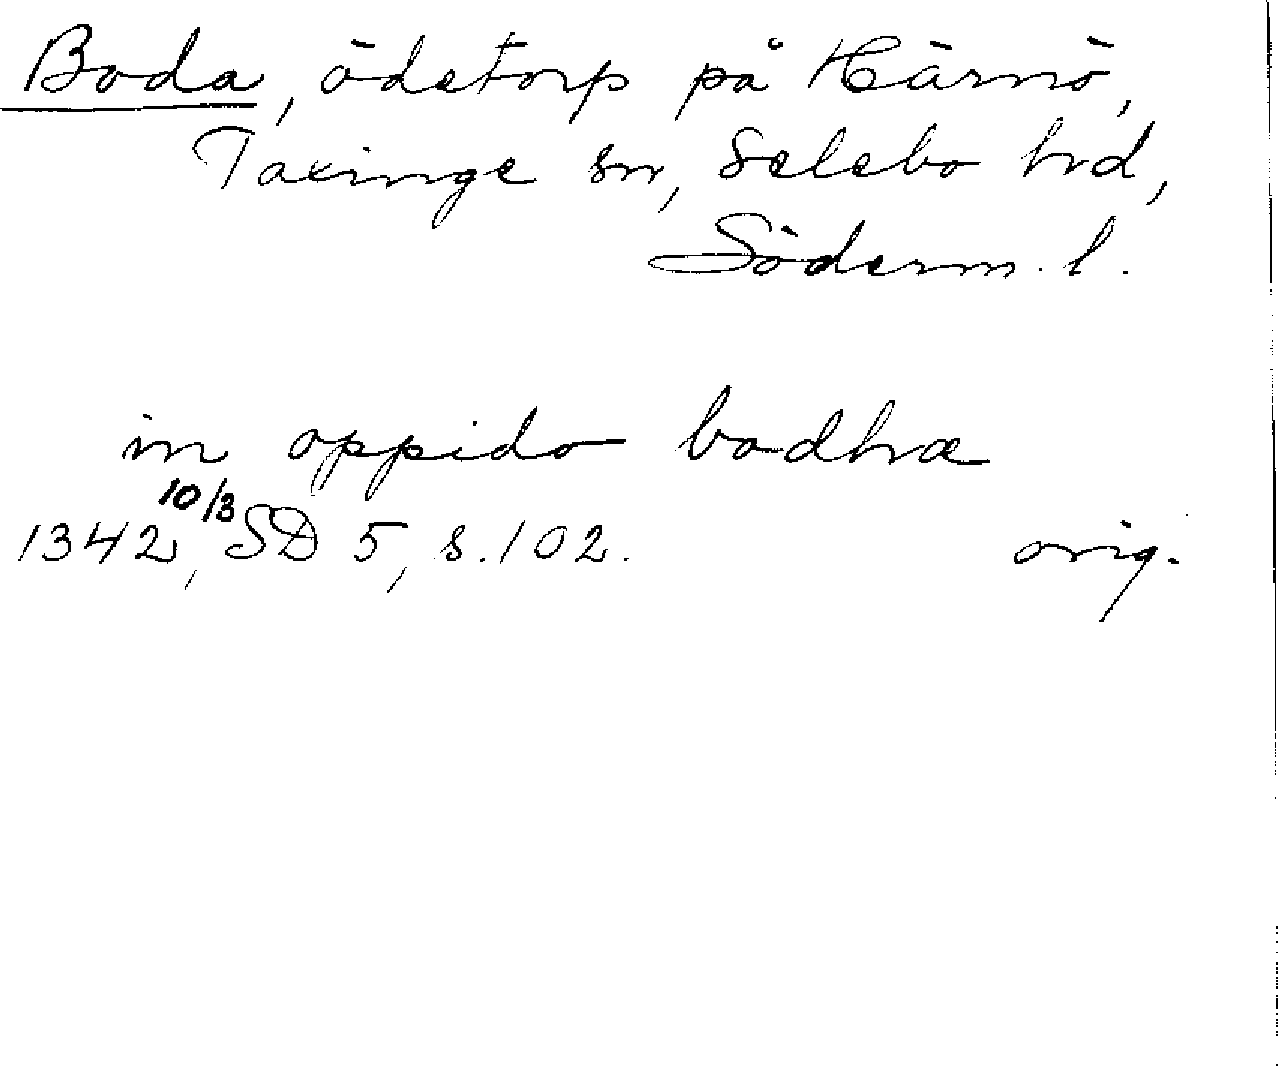 Boda, ödetorp på Härnö,
Taxinge sn, Selebo hd,
Söderm. l.
in oppido bodhæ
1342 10/3, SD 5, s. 102. orig.